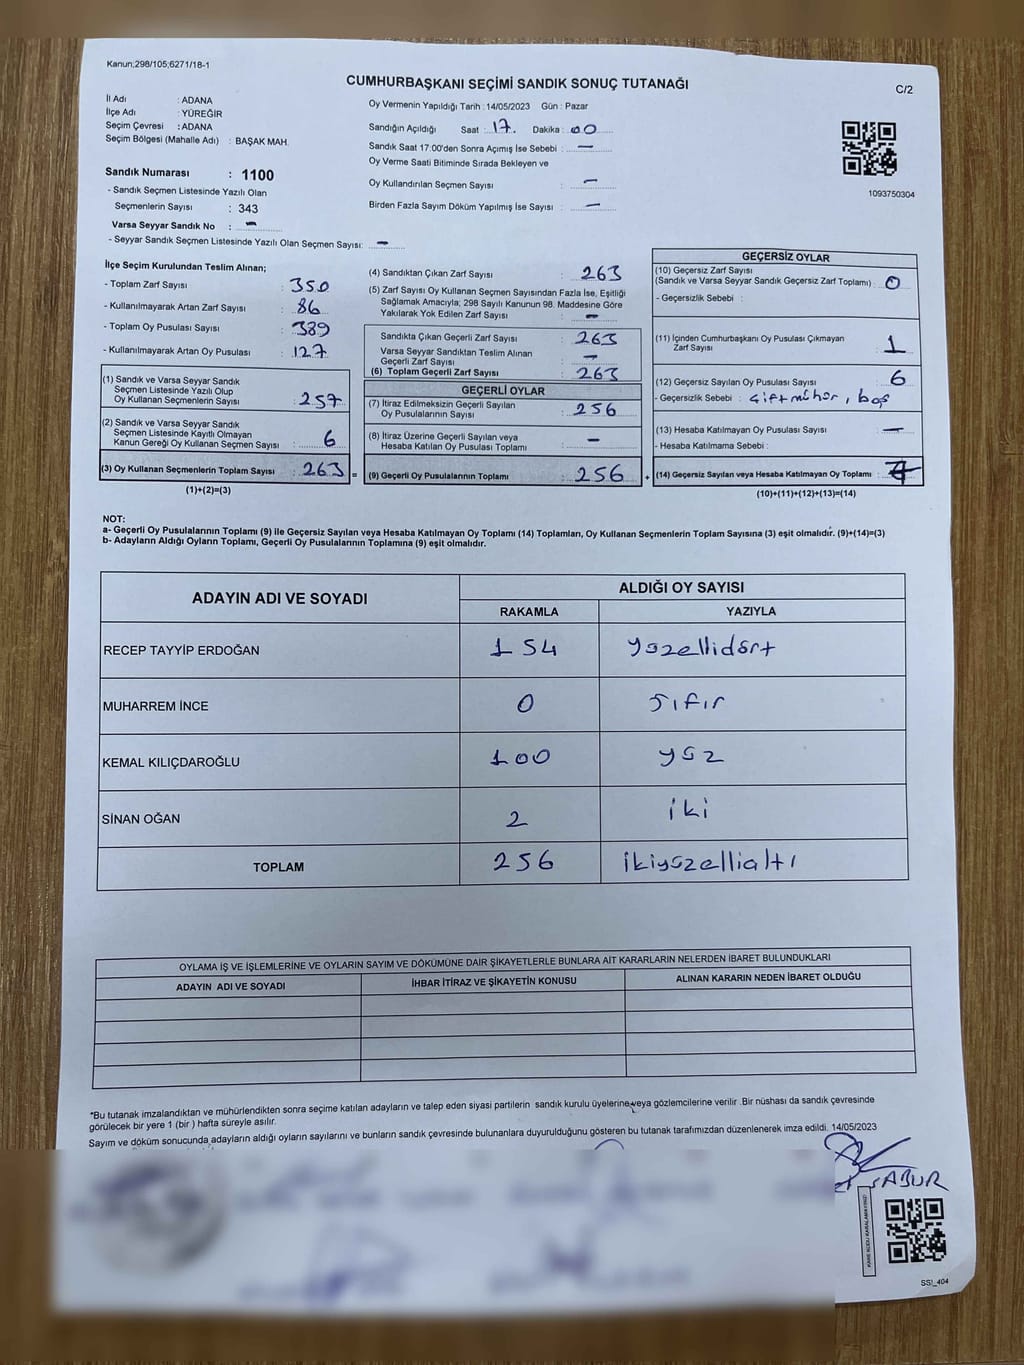 Kanun;298/105;6271/18-1
CUMHURBAŞKANI SEÇİMİ SANDIK SONUÇ TUTANAĞI
C/2
İl Adı : ADANA
İlçe Adı : YÜREĞİR
Seçim Çevresi : ADANA
Seçim Bölgesi (Mahalle Adı) : BAŞAK MAH.
Oy Vermenin Yapıldığı Tarih : 14/05/2023 Gün : Pazar
Sandığın Açıldığı Saat : 17. Dakika : 00
Sandık Saat 17:00'den Sonra Açımış İse Sebebi : —
Oy Verme Saati Bitiminde Sırada Bekleyen ve
Oy Kullandırılan Seçmen Sayısı : —
Birden Fazla Sayım Döküm Yapılmış İse Sayısı : —
1093750304
Sandık Numarası : 1100
- Sandık Seçmen Listesinde Yazılı Olan
Seçmenlerin Sayısı : 343
Varsa Seyyar Sandık No : —
- Seyyar Sandık Seçmen Listesinde Yazılı Olan Seçmen Sayısı: —
İlçe Seçim Kurulundan Teslim Alınan;
- Toplam Zarf Sayısı : 350
- Kullanılmayarak Artan Zarf Sayısı : 86
- Toplam Oy Pusulası Sayısı : 389
- Kullanılmayarak Artan Oy Pusulası : 127
(1) Sandık ve Varsa Seyyar Sandık
Seçmen Listesinde Yazılı Olup
Oy Kullanan Seçmenlerin Sayısı : 257
(2) Sandık ve Varsa Seyyar Sandık
Seçmen Listesinde Kayıtlı Olmayan
Kanun Gereği Oy Kullanan Seçmen Sayısı : 6
(3) Oy Kullanan Seçmenlerin Toplam Sayısı : 263 =
(1)+(2)=(3)
(4) Sandıktan Çıkan Zarf Sayısı : 263
(5) Zarf Sayısı Oy Kullanan Seçmen Sayısından Fazla İse, Eşitliği
Sağlamak Amacıyla; 298 Sayılı Kanunun 98. Maddesine Göre
Yakılarak Yok Edilen Zarf Sayısı : —
Sandıkta Çıkan Geçerli Zarf Sayısı : 263
Varsa Seyyar Sandıktan Teslim Alınan
Geçerli Zarf Sayısı : —
(6) Toplam Geçerli Zarf Sayısı : 263
GEÇERLİ OYLAR
(7) İtiraz Edilmeksizin Geçerli Sayılan
Oy Pusulalarının Sayısı : 256
(8) İtiraz Üzerine Geçerli Sayılan veya
Hesaba Katılan Oy Pusulası Toplamı : —
(9) Geçerli Oy Pusulalarının Toplamı : 256 +
GEÇERSİZ OYLAR
(10) Geçersiz Zarf Sayısı
(Sandık ve Varsa Seyyar Sandık Geçersiz Zarf Toplamı) : 0
- Geçersizlik Sebebi :
(11) İçinden Cumhurbaşkanı Oy Pusulası Çıkmayan
Zarf Sayısı : 1
(12) Geçersiz Sayılan Oy Pusulası Sayısı : 6
- Geçersizlik Sebebi : Çiftmühür, boş
(13) Hesaba Katılmayan Oy Pusulası Sayısı : —
- Hesaba Katılmama Sebebi :
(14) Geçersiz Sayılan veya Hesaba Katılmayan Oy Toplamı : 7
(10)+(11)+(12)+(13)=(14)
NOT:
a- Geçerli Oy Pusulalarının Toplamı (9) ile Geçersiz Sayılan veya Hesaba Katılmayan Oy Toplamı (14) Toplamları, Oy Kullanan Seçmenlerin Toplam Sayısına (3) eşit olmalıdır. (9)+(14)=(3)
b- Adayların Aldığı Oyların Toplamı, Geçerli Oy Pusulalarının Toplamına (9) eşit olmalıdır.
ADAYIN ADI VE SOYADI
ALDIĞI OY SAYISI
RAKAMLA YAZIYLA
RECEP TAYYİP ERDOĞAN 154 yüzellidört
MUHARREM İNCE 0 sıfır
KEMAL KILIÇDAROĞLU 100 yüz
SİNAN OĞAN 2 iki
TOPLAM 256 ikiyüzellialtı
OYLAMA İŞ VE İŞLEMLERİNE VE OYLARIN SAYIM VE DÖKÜMÜNE DAİR ŞİKAYETLERLE BUNLARA AİT KARARLARIN NELERDEN İBARET BULUNDUKLARI
ADAYIN ADI VE SOYADI İHBAR İTİRAZ VE ŞİKAYETİN KONUSU ALINAN KARARIN NEDEN İBARET OLDUĞU
*Bu tutanak imzalandıktan ve mühürlendikten sonra seçime katılan adayların ve talep eden siyasi partilerin sandık kurulu üyelerine veya gözlemcilerine verilir .Bir nüshası da sandık çevresinde
görülecek bir yere 1 (bir ) hafta süreyle asılır.
Sayım ve döküm sonucunda adayların aldığı oyların sayılarını ve bunların sandık çevresinde bulunanlara duyurulduğunu gösteren bu tutanak tarafımızdan düzenlenerek imza edildi. 14/05/2023
SABUR
SSI_404